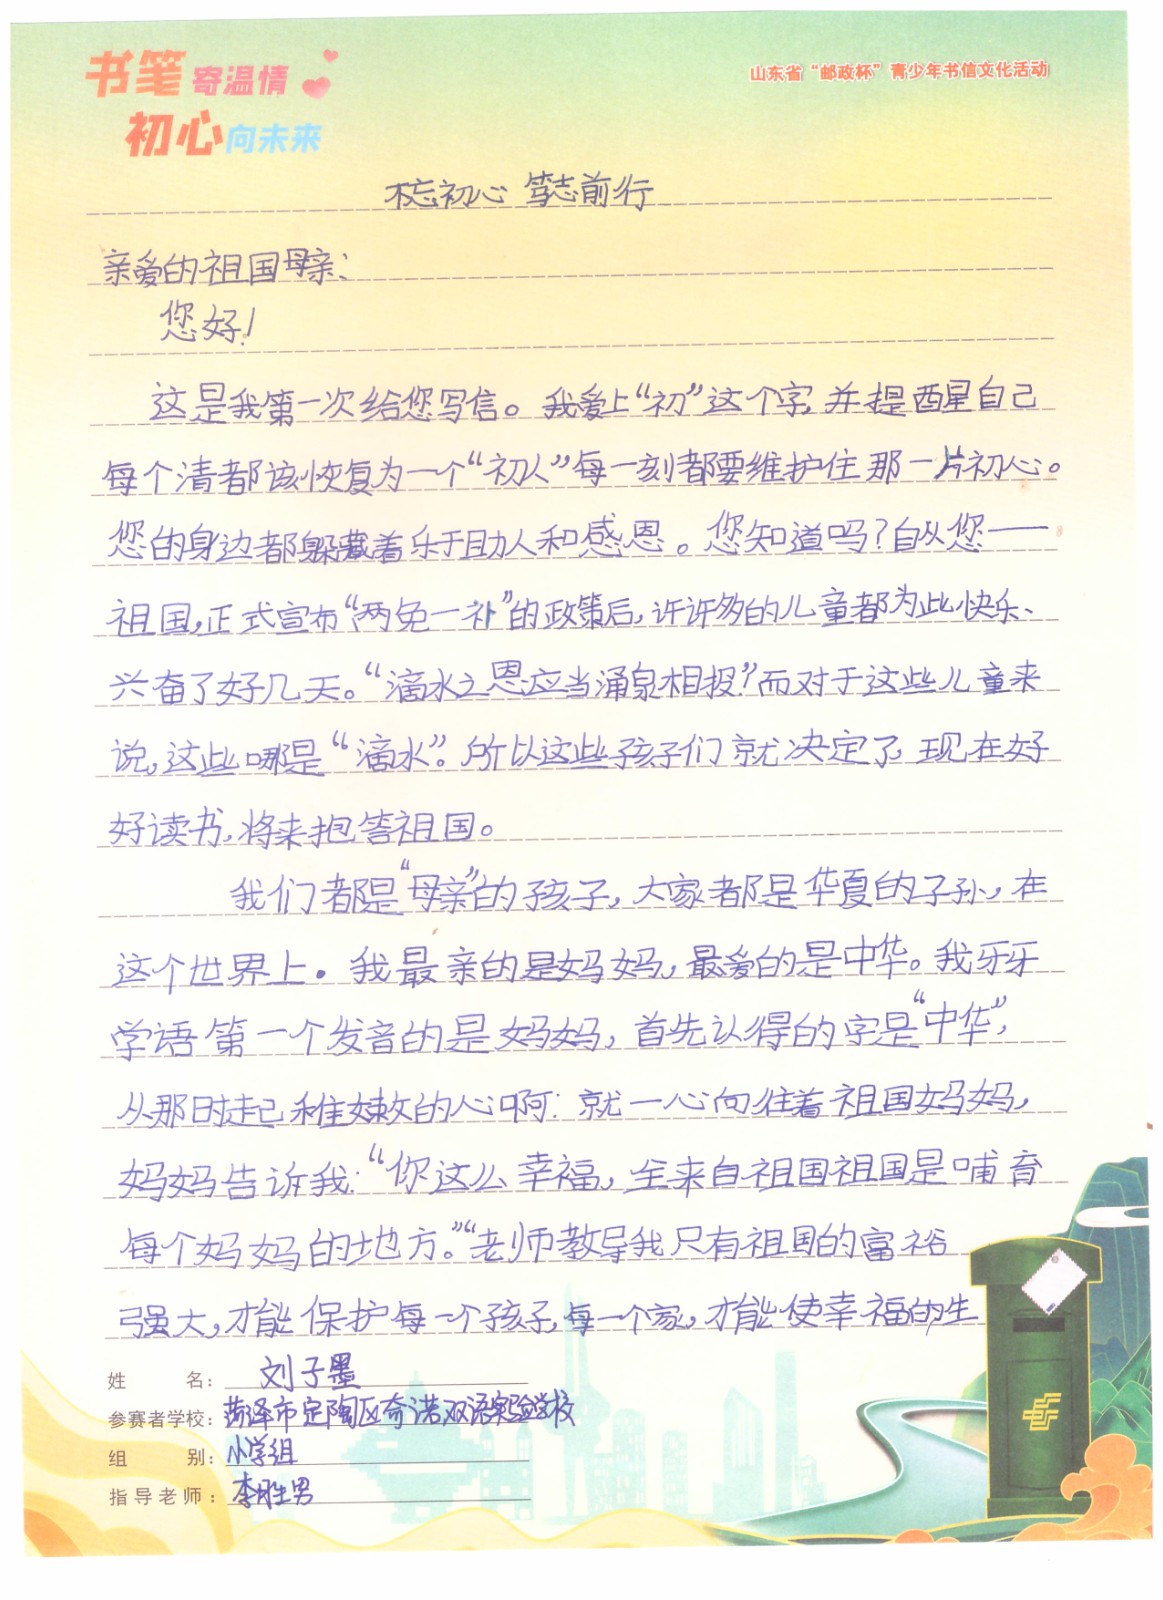 书笔寄温情
初心向未来
山东省“邮政杯”青少年书信文化活动
不忘初心 笃志前行
亲爱的祖国母亲:
您好!
这是我第一次给您写信。我爱上“初”这个字,并提醒自己
每个清都该恢复为一个“初人”每一刻都要维护住那一片初心。
您的身边都躲藏着乐于助人和感恩。您知道吗?自从您——
祖国,正式宣布“两免一补”的政策后,许许多的儿童都为此快乐、
兴奋了好几天。“滴水之恩应当涌泉相报”而对于这些儿童来
说,这些哪是“滴水”。所以这些孩子们就决定了现在好
好读书,将来抱答祖国。
我们都是“母亲”的孩子,大家都是华夏的子孙,在
这个世界上。我最亲的是妈妈,最爱的是中华。我牙牙
学语第一个发音的是妈妈,首先认得的字是“中华”,
从那时起稚嫩的心啊:就一心向往着祖国妈妈,
妈妈告诉我:“你这么幸福,全来自祖国祖国是哺育
每个妈妈的地方。”“老师教导我只有祖国的富裕
强大,才能保护每一个孩子,每一个家,才能使幸福的生
姓名: 刘子墨
参赛者学校: 菏泽市定陶区奇诺双语实验学校
组别: 小学组
指导老师: 李胜男